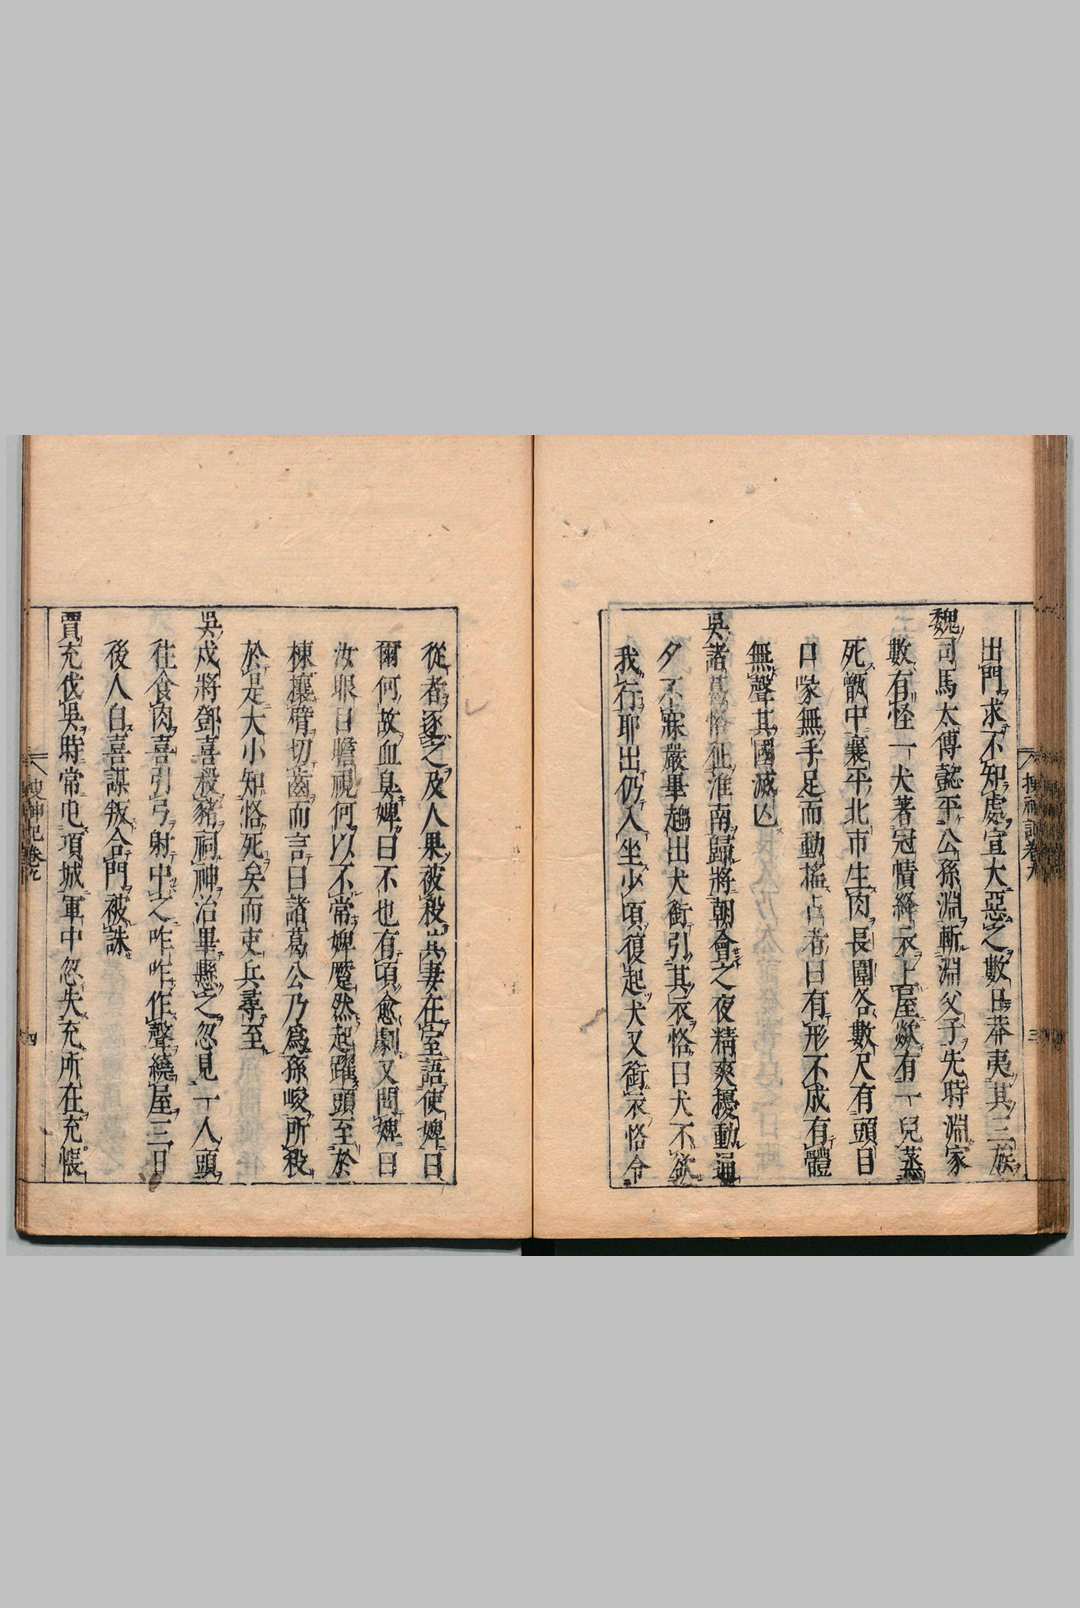 出門求不知處宣大惡之數日莽夷其三族
魏司馬太傅懿平公孫淵斬淵父子先時淵家
數有怪一犬著冠幘絳衣上屋欻有一兒蒸
死甑中襄平北市生肉長圍各數尺有頭目
口喙無手足而動搖占者曰有形不成有體
無聲其國滅亡
吳諸葛恪征淮南歸將朝會之夜精爽擾動通
夕不寐嚴畢趨出犬銜引其衣恪曰犬不欲
我行耶出仍入坐少頃復起犬又銜衣恪令
從者逐之及入果被殺其妻在室語使婢曰
爾何故血臭婢曰不也有頃愈劇又問婢曰
汝眼目瞻視何以不常婢蹷然起躍頭至於
棟攘臂切齒而言曰諸葛公乃為孫峻所殺
於是大小知恪死矣而吏兵尋至
吳戍將鄧喜殺豬祠神治畢懸之忽見一人頭
往食肉喜引弓射中之咋咋作聲繞屋三日
後人白喜謀叛合門被誅
賈充伐吳時常屯項城軍中忽失充所在充帳
搜神記卷九
三
搜神記卷九
四